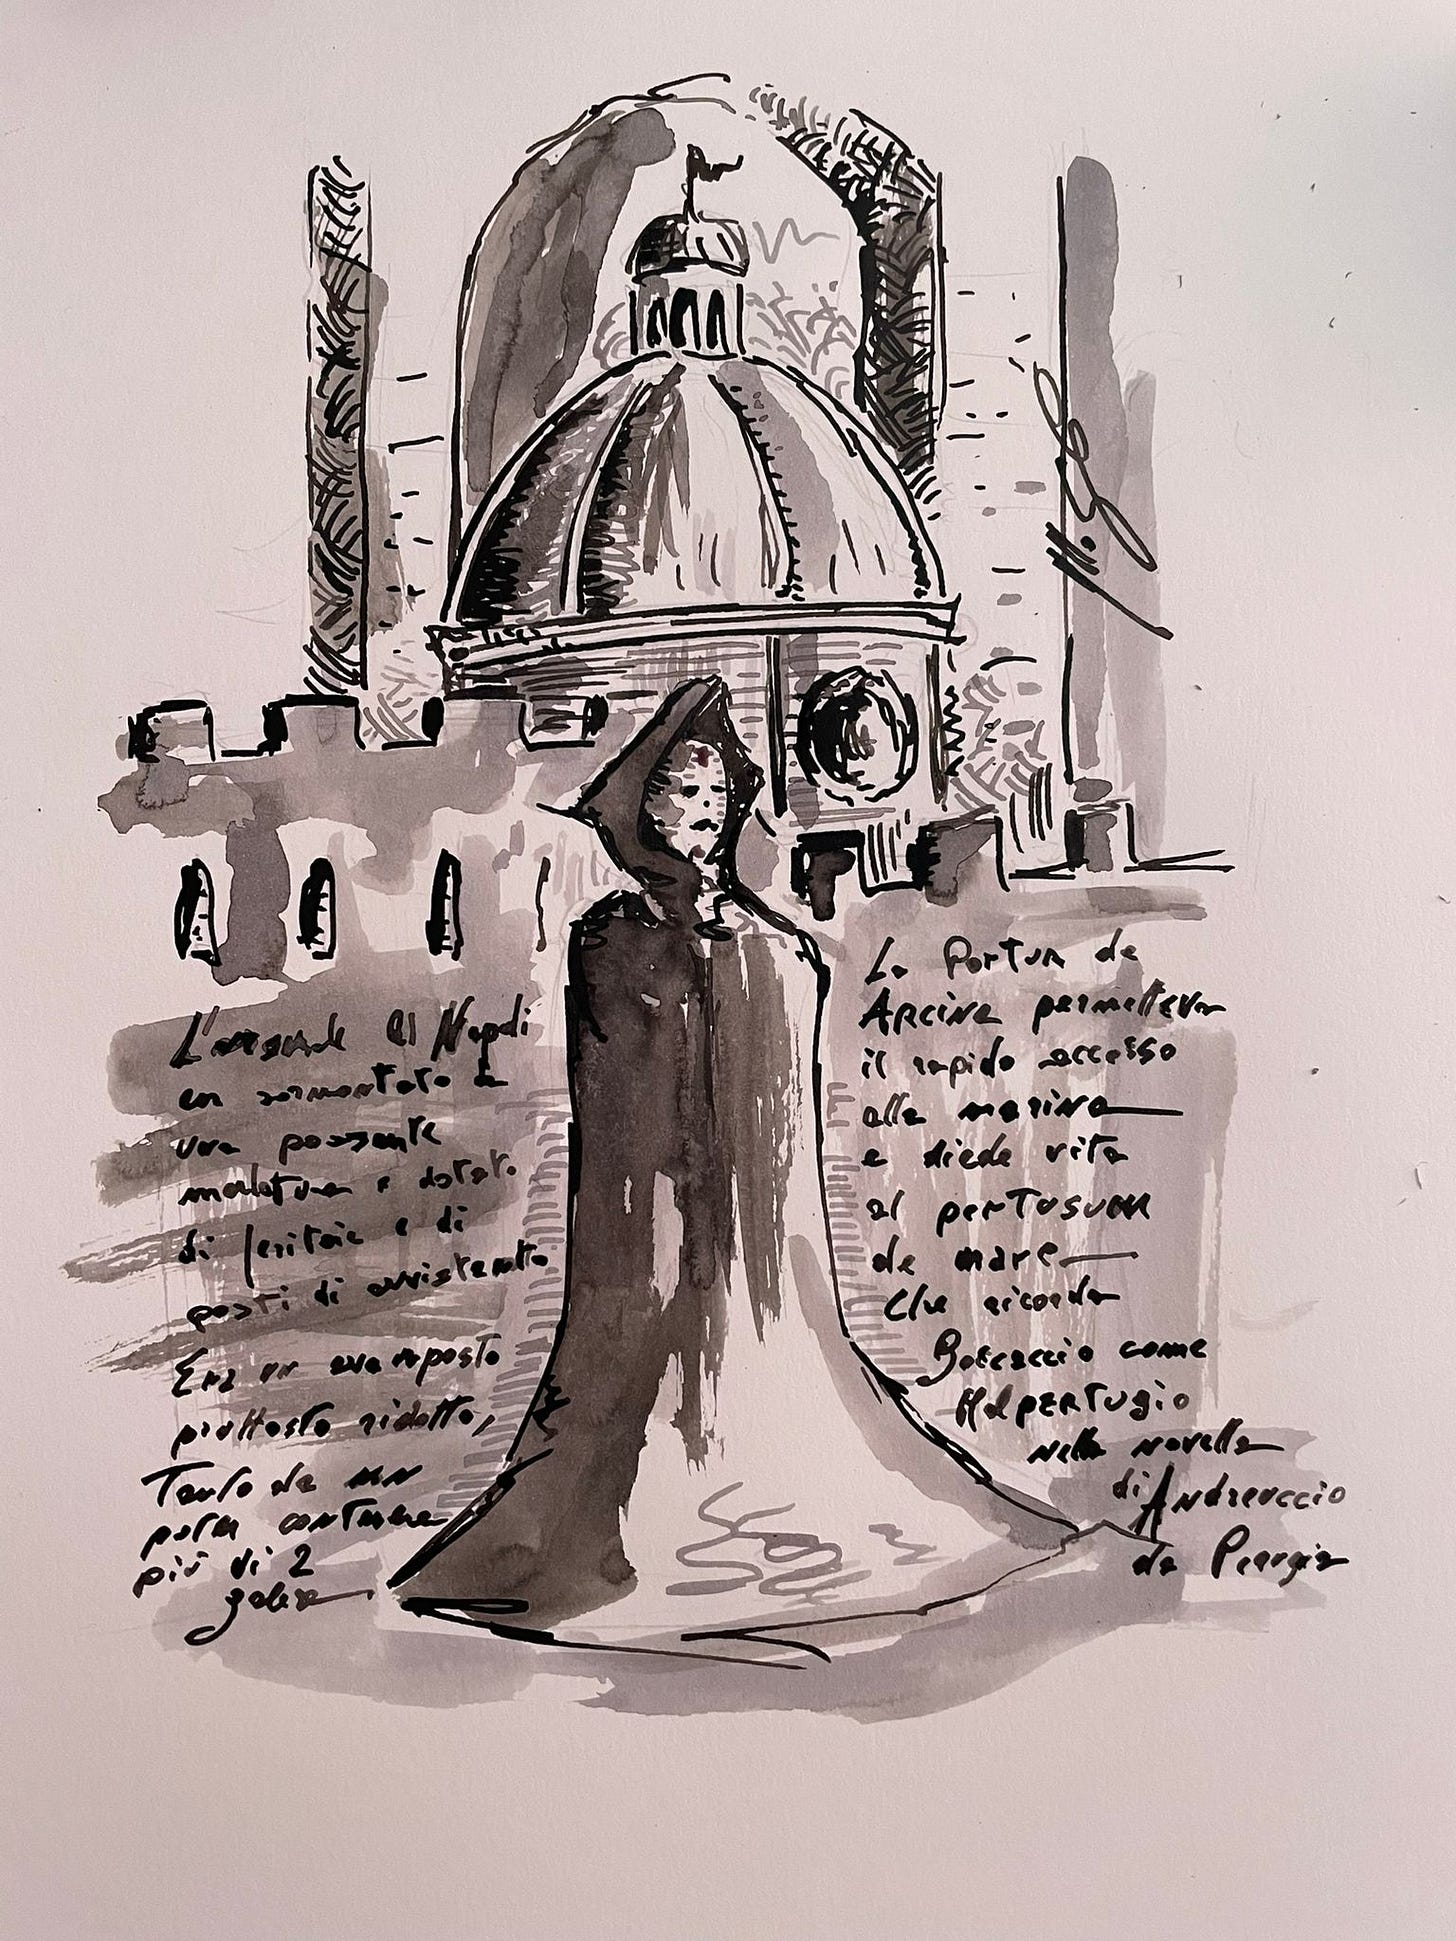 L'arsenale di Napoli
era sormontato da
una possente
muratura e dotato
di feritoie e di
posti di avvistamento
Era un avamposto
piuttosto ridotto,
Tanto da non
poter contenere
più di 2
galere
La Portum de
Arcina permetteva
il rapido accesso
alla marina
e diede vita
al perTusum
de mare
Che ricorda
Boccaccio come
MalPERTUgio
nella novella
di Andreuccio
da Perugia